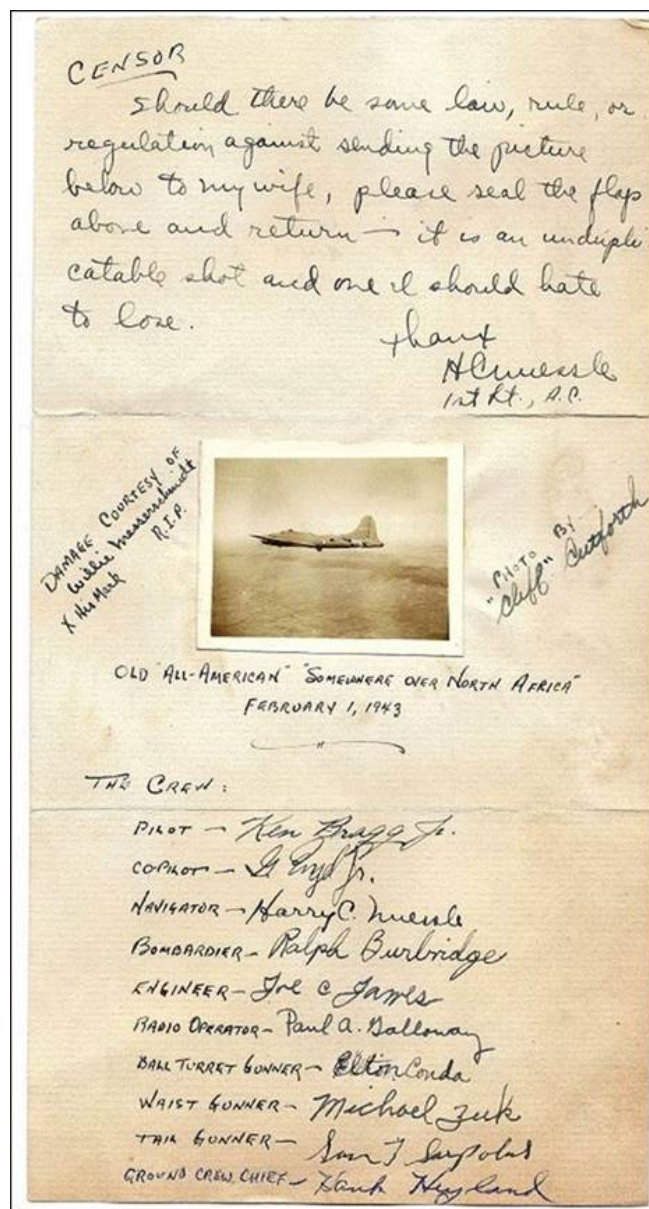 CENSOR
Should there be some law, rule, or
regulation against sending the picture
below to my wife, please seal the flap
above and return — it is an undupli
catable shot and one I should hate
to lose.
thanx
HCNuessle
1st Lt., A.C.
DAMAGE COURTESY OF
Willie Messerschmidt
R.I.P.
X His Mark
"PHOTO BY
Cliff" Cutforth
OLD "ALL-AMERICAN" "SOMEWHERE OVER NORTH AFRICA"
FEBRUARY 1, 1943
THE CREW:
PILOT — Ken Bragg Jr.
COPILOT — Jr.
NAVIGATOR — Harry C. Nuessle
BOMBARDIER — Ralph Burbridge
ENGINEER — Joe C James
RADIO OPERATOR — Paul A. Galloway
BALL TURRET GUNNER — Elton Conda
WAIST GUNNER — Michael Zuk
TAIL GUNNER — Sam T Sarpolus
GROUND CREW CHIEF — Hank Hyland